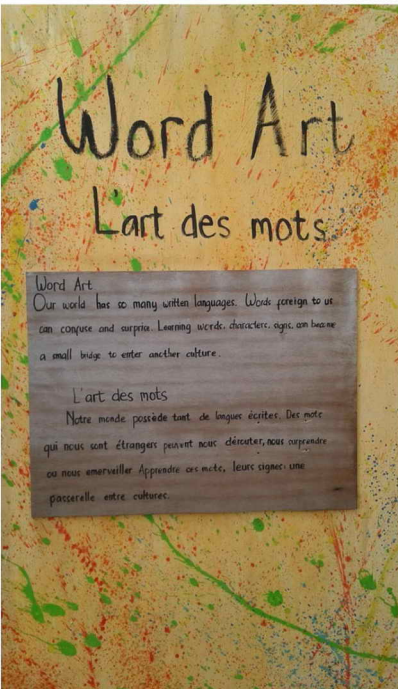 Word Art
L'art des mots
Word Art
Our world has so many written languages. Words foreign to us
can confuse and surprise. Learning words, characters, signs, can become
a small bridge to enter another culture.
L'art des mots
Notre monde possède tant de langues écrites. Des mots
qui nous sont étrangers peuvent nous dérouter, nous surprendre
ou nous emerveiller Apprendre ces mots, leurs signes: une
passerelle entre cultures.